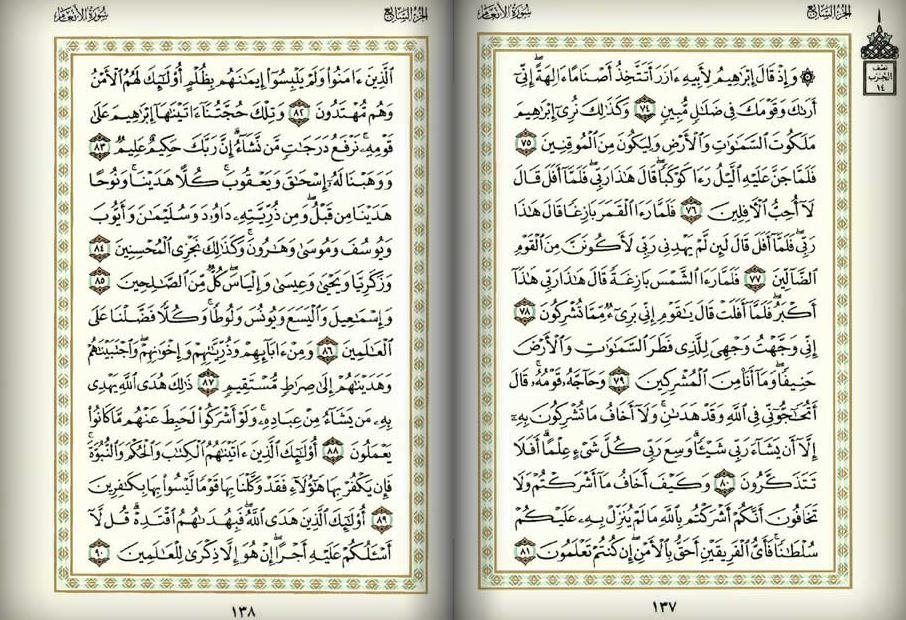 الجزء السابع
سورة الأنعام
نصف
الحزب
١٤
۞ وَإِذْ قَالَ إِبْرَٰهِيمُ لِأَبِيهِ ءَازَرَ أَتَتَّخِذُ أَصْنَامًا ءَالِهَةً إِنِّىٓ
أَرَىٰكَ وَقَوْمَكَ فِى ضَلَٰلٍ مُّبِينٍ ٧٤ وَكَذَٰلِكَ نُرِىٓ إِبْرَٰهِيمَ
مَلَكُوتَ ٱلسَّمَٰوَٰتِ وَٱلْأَرْضِ وَلِيَكُونَ مِنَ ٱلْمُوقِنِينَ ٧٥
فَلَمَّا جَنَّ عَلَيْهِ ٱلَّيْلُ رَءَا كَوْكَبًا قَالَ هَٰذَا رَبِّى فَلَمَّآ أَفَلَ قَالَ
لَآ أُحِبُّ ٱلْءَافِلِينَ ٧٦ فَلَمَّا رَءَا ٱلْقَمَرَ بَازِغًا قَالَ هَٰذَا
رَبِّى فَلَمَّآ أَفَلَ قَالَ لَئِن لَّمْ يَهْدِنِى رَبِّى لَأَكُونَنَّ مِنَ ٱلْقَوْمِ
ٱلضَّآلِّينَ ٧٧ فَلَمَّا رَءَا ٱلشَّمْسَ بَازِغَةً قَالَ هَٰذَا رَبِّى هَٰذَآ
أَكْبَرُ فَلَمَّآ أَفَلَتْ قَالَ يَٰقَوْمِ إِنِّى بَرِىٓءٌ مِّمَّا تُشْرِكُونَ ٧٨
إِنِّى وَجَّهْتُ وَجْهِىَ لِلَّذِى فَطَرَ ٱلسَّمَٰوَٰتِ وَٱلْأَرْضَ
حَنِيفًا وَمَآ أَنَا۠ مِنَ ٱلْمُشْرِكِينَ ٧٩ وَحَآجَّهُۥ قَوْمُهُۥ قَالَ
أَتُحَٰٓجُّوٓنِّى فِى ٱللَّهِ وَقَدْ هَدَىٰنِ وَلَآ أَخَافُ مَا تُشْرِكُونَ بِهِۦٓ
إِلَّآ أَن يَشَآءَ رَبِّى شَيْـًٔا وَسِعَ رَبِّى كُلَّ شَىْءٍ عِلْمًا أَفَلَا
تَتَذَكَّرُونَ ٨٠ وَكَيْفَ أَخَافُ مَآ أَشْرَكْتُمْ وَلَا
تَخَافُونَ أَنَّكُمْ أَشْرَكْتُم بِٱللَّهِ مَا لَمْ يُنَزِّلْ بِهِۦ عَلَيْكُمْ
سُلْطَٰنًا فَأَىُّ ٱلْفَرِيقَيْنِ أَحَقُّ بِٱلْأَمْنِ إِن كُنتُمْ تَعْلَمُونَ ٨١
١٣٧
الجزء السابع
سورة الأنعام
ٱلَّذِينَ ءَامَنُوا۟ وَلَمْ يَلْبِسُوٓا۟ إِيمَٰنَهُم بِظُلْمٍ أُو۟لَٰٓئِكَ لَهُمُ ٱلْأَمْنُ
وَهُم مُّهْتَدُونَ ٨٢ وَتِلْكَ حُجَّتُنَآ ءَاتَيْنَٰهَآ إِبْرَٰهِيمَ عَلَىٰ
قَوْمِهِۦ نَرْفَعُ دَرَجَٰتٍ مَّن نَّشَآءُ إِنَّ رَبَّكَ حَكِيمٌ عَلِيمٌ ٨٣
وَوَهَبْنَا لَهُۥٓ إِسْحَٰقَ وَيَعْقُوبَ كُلًّا هَدَيْنَا وَنُوحًا
هَدَيْنَا مِن قَبْلُ وَمِن ذُرِّيَّتِهِۦ دَاوُۥدَ وَسُلَيْمَٰنَ وَأَيُّوبَ
وَيُوسُفَ وَمُوسَىٰ وَهَٰرُونَ وَكَذَٰلِكَ نَجْزِى ٱلْمُحْسِنِينَ ٨٤
وَزَكَرِيَّا وَيَحْيَىٰ وَعِيسَىٰ وَإِلْيَاسَ كُلٌّ مِّنَ ٱلصَّٰلِحِينَ ٨٥
وَإِسْمَٰعِيلَ وَٱلْيَسَعَ وَيُونُسَ وَلُوطًا وَكُلًّا فَضَّلْنَا عَلَى
ٱلْعَٰلَمِينَ ٨٦ وَمِنْ ءَابَآئِهِمْ وَذُرِّيَّٰتِهِمْ وَإِخْوَٰنِهِمْ وَٱجْتَبَيْنَٰهُمْ
وَهَدَيْنَٰهُمْ إِلَىٰ صِرَٰطٍ مُّسْتَقِيمٍ ٨٧ ذَٰلِكَ هُدَى ٱللَّهِ يَهْدِى
بِهِۦ مَن يَشَآءُ مِنْ عِبَادِهِۦ وَلَوْ أَشْرَكُوا۟ لَحَبِطَ عَنْهُم مَّا كَانُوا۟
يَعْمَلُونَ ٨٨ أُو۟لَٰٓئِكَ ٱلَّذِينَ ءَاتَيْنَٰهُمُ ٱلْكِتَٰبَ وَٱلْحُكْمَ وَٱلنُّبُوَّةَ
فَإِن يَكْفُرْ بِهَا هَٰٓؤُلَآءِ فَقَدْ وَكَّلْنَا بِهَا قَوْمًا لَّيْسُوا۟ بِهَا بِكَٰفِرِينَ
٨٩ أُو۟لَٰٓئِكَ ٱلَّذِينَ هَدَى ٱللَّهُ فَبِهُدَىٰهُمُ ٱقْتَدِهْ قُل لَّآ
أَسْـَٔلُكُمْ عَلَيْهِ أَجْرًا إِنْ هُوَ إِلَّا ذِكْرَىٰ لِلْعَٰلَمِينَ ٩٠
١٣٨